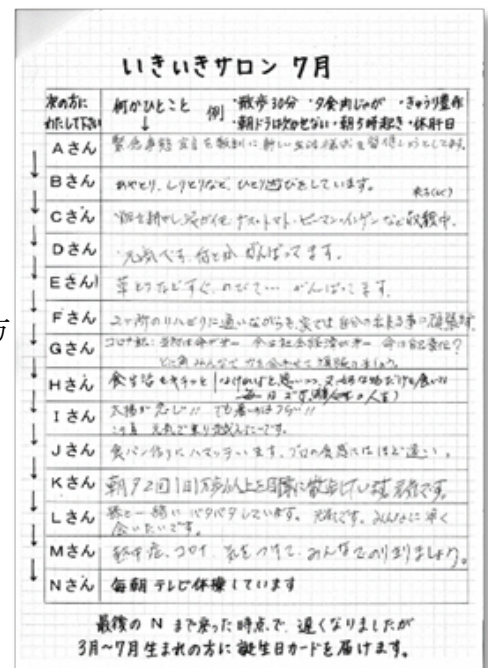 いきいきサロン 7月
次の方に 何かひとこと 例 ・散歩30分 ・夕食肉じゃが ・きゅうり豊作
わたして下さい ↓ ・朝ドラは欠かせない ・朝5時起き ・休肝日
Aさん 緊急事態宣言を教訓に新しい生活様式を習得しようとしてます。
Bさん あやとり、しりとりなど、ひとり遊びをしています。
Cさん 畑を耕やし、じゃがイモ、ナス、トマト、ピーマン、インゲンなど収穫中。
Dさん 元気です。何とかがんばってます。
Eさん 草とってもすぐ、のびて… がんばってます。
Fさん 2ヶ所のリハビリに通いながらも、家では自分の出来る事を頑張ってます
Gさん コロナ
みんなで力を合わせて頑張りましょう。
Hさん 食生活もキチッとしなければと思いつつ、
Iさん 太陽が恋しい!! でも暑いのはつらい!!
元気に乗り越えたいです。
Jさん 食パン作りにハマッています。プロの食感にはほど遠い。
Kさん 朝夕2回1日1万歩以上を目標に散歩しています。元気です。
Lさん 孫と一緒にバタバタしています。元気です。みんなに早く
会いたいです。
Mさん 熱中症、コロナ、気をつけて、みんなでのりきりましょう。
Nさん 毎朝テレビ体操しています
最後の N まで戻った時点で、遅くなりましたが
3月〜7月生まれの方に誕生日カードを届けます。
方